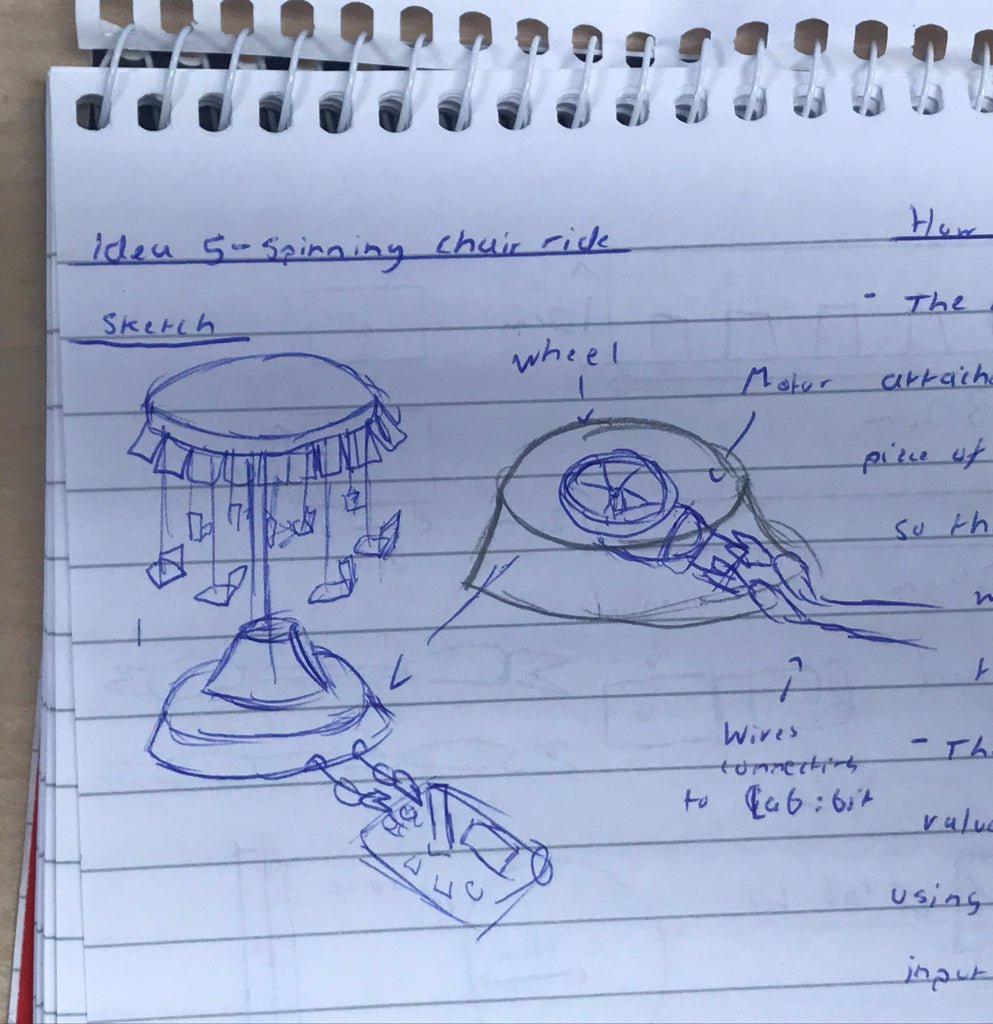 Idea 5 - Spinning chair ride
Sketch
wheel
Motor
Wires
connecting
to Lab:bit
How
- The
attach
piece of
so th
- Th
valu
using
input